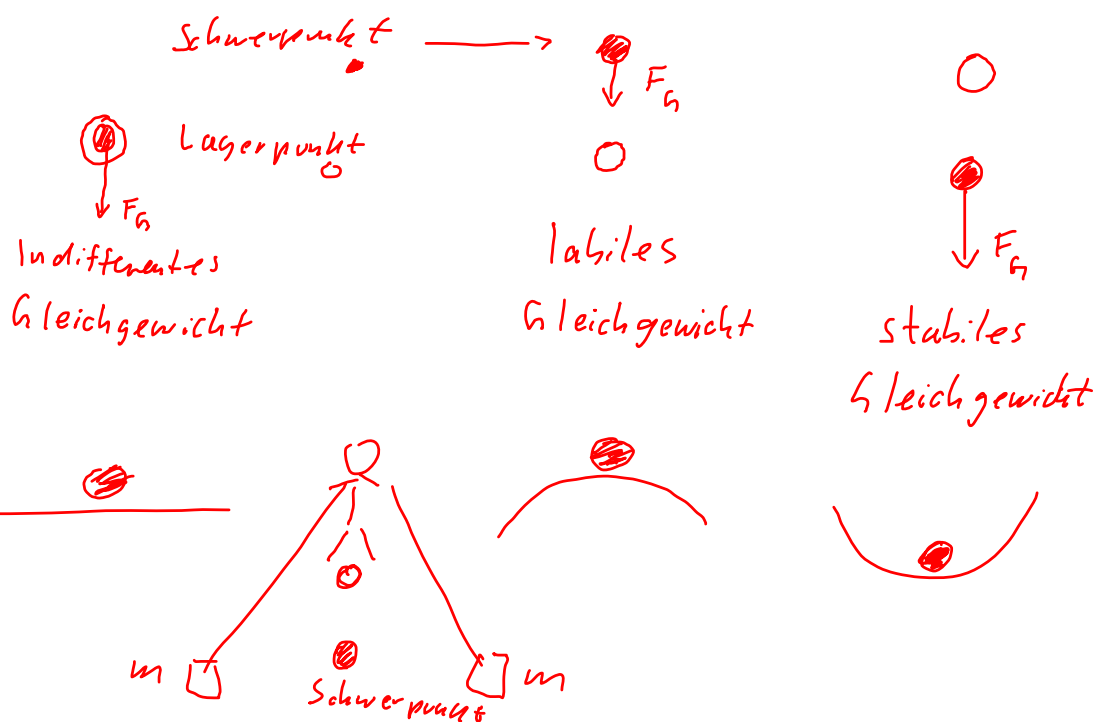 Schwerpunkt
F_G
Lagerpunkt
F_G
Indifferentes
Gleichgewicht
labiles
Gleichgewicht
F_G
stabiles
Gleichgewicht
m
m
Schwerpunkt